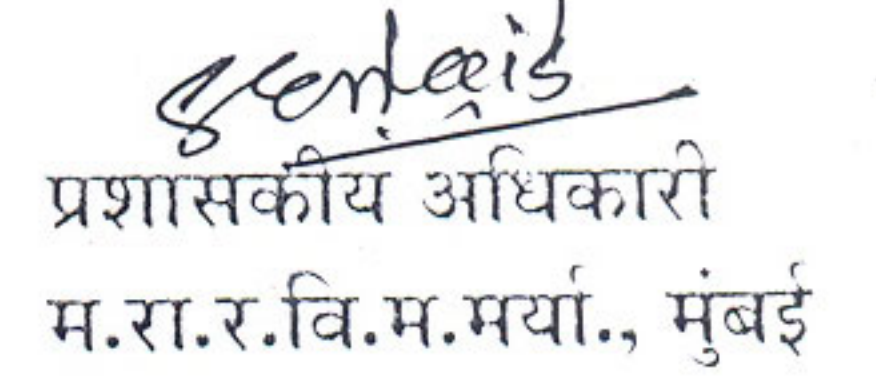 प्रशासकीय अधिकारी
म.रा.र.वि.म.मर्या., मुंबई